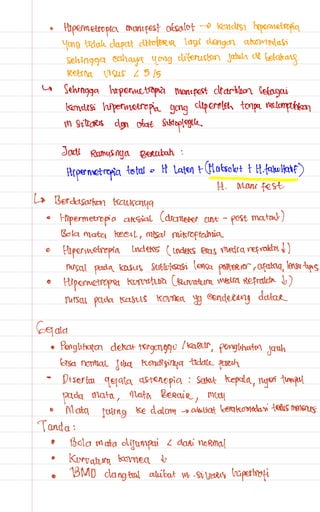 • Hipermetropia manifest absolut → kondisi hipermetropia
yang tidak dapat ditolerir lagi dengan akomodasi
sehingga cahaya yang diteruskan jatuh di belakang
retina visus < 5/5
↳ Sehingga hipermetropia manifest diartikan sebagai
kondisi hipermetropia yang diperoleh tanpa melumpuhkan
m siliaris dgn obat sikloplegik.
Jadi Rumusnya Berubah :
Hipermetropia total = H Laten + (H absolut + H. fakultatif)
H. Manifest
↳ Berdasarkan kausanya
• Hipermetropia aksial (diameter ant - post mata ↓)
Bola mata kecil, misal mikroftalmia
• Hipermetropia Indeks (indeks bias media refraksi ↓)
misal pada kasus subluksasi lensa posterior, afakia, lensa tipis
• Hipermetropia kurvatura (kurvatura media refraksi ↓)
misal pada kasus kornea yg cenderung datar
Gejala
• Penglihatan dekat terganggu / kabur, penglihatan jauh
bisa normal jika kondisinya tidak parah
- Disertai gejala astenopia : Sakit kepala, nyeri tumpul
pada mata, mata berair,
• Mata juling ke dalam → akibat berakomodasi terus menerus
Tanda :
• Bola mata dijumpai < dari normal
• Kurvatura kornea ↓
• BMD dangkal akibat m. siliaris hipertrofi